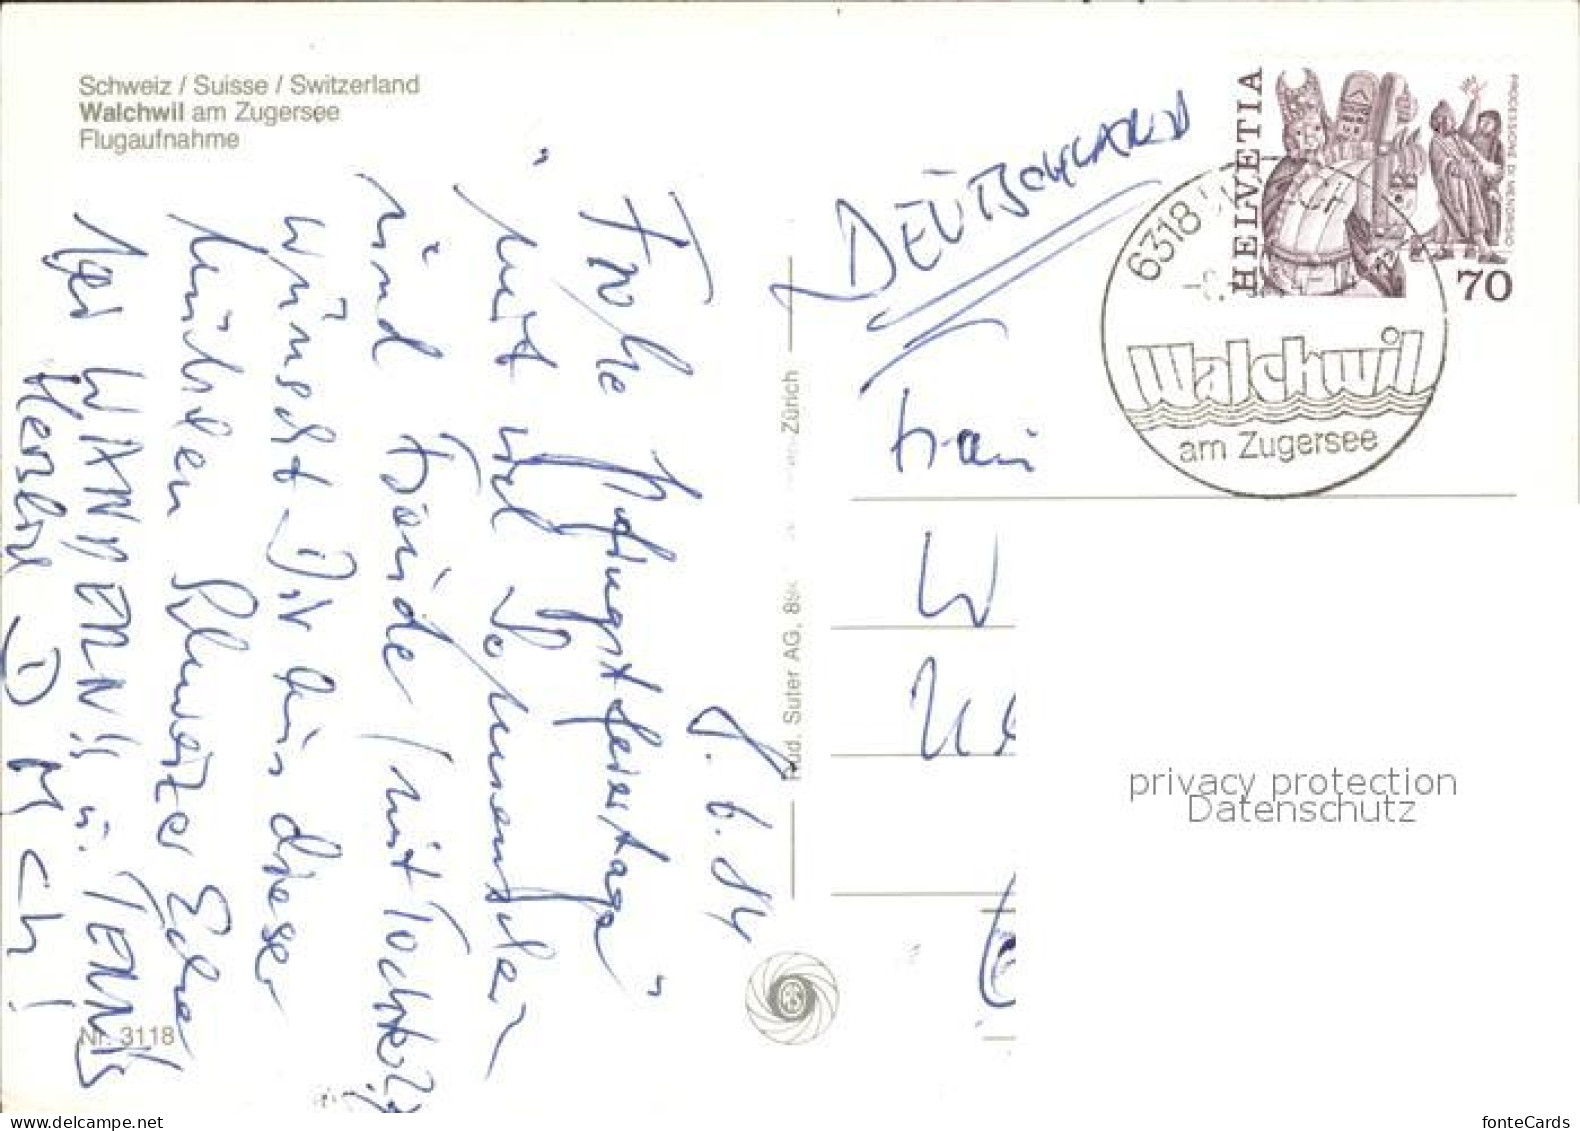 Schweiz / Suisse / Switzerland
Walchwil am Zugersee
Flugaufnahme
DEUTSCHLAND
HELVETIA
PROCESSIONE DI MENDRISIO
70
6318
Walchwil
am Zugersee
8. 6. 84
"Frohe Pfingstfeiertage"
mit viel Sonnen
und Freude (mit Tochter)
wünscht Dir aus dieser
hübschen Schweizer Ecke
bei WANDERN u. TENNIS
Herzlich D M CH!
Frau
W
Rud. Suter AG, 89
Zürich
Nr. 3118
privacy protection
Datenschutz
fonteCards